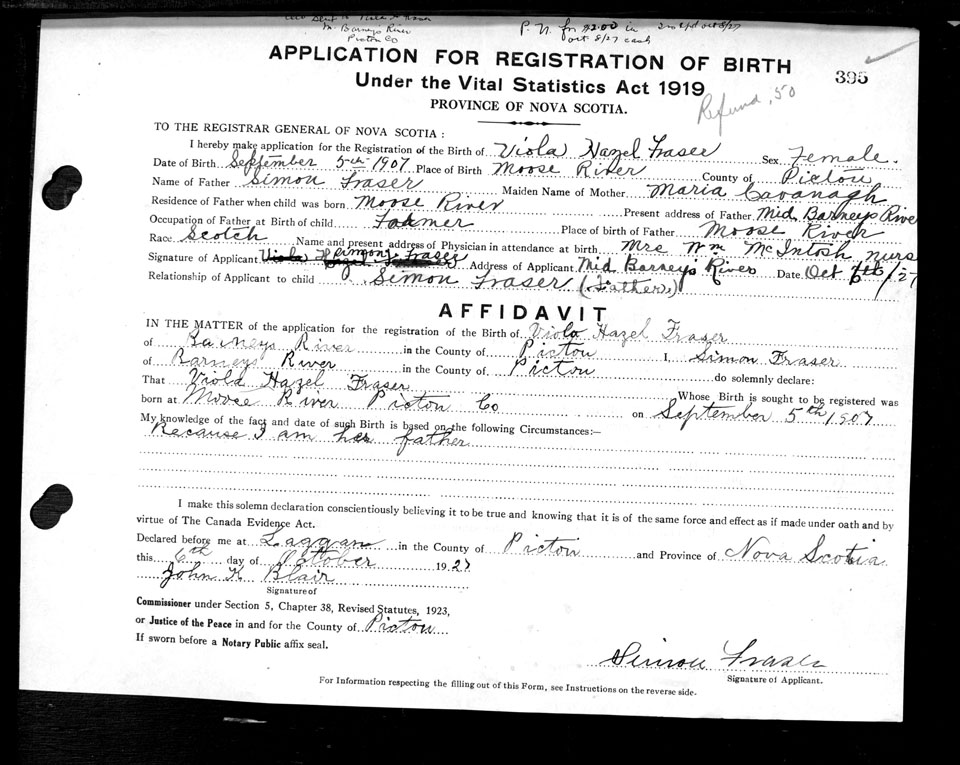 M. Barneys River
Pictou Co
P. N. for $2.00 in
oct 8/27 cash
APPLICATION FOR REGISTRATION OF BIRTH
395
Under the Vital Statistics Act 1919
Refund .50
PROVINCE OF NOVA SCOTIA.
TO THE REGISTRAR GENERAL OF NOVA SCOTIA :
I hereby make application for the Registration of the Birth of Viola Hazel Fraser Sex Female.
Date of Birth September 5th 1907 Place of Birth Moose River County of Pictou
Name of Father Simon Fraser Maiden Name of Mother Maria Cavanagh
Residence of Father when child was born Moose River Present address of Father Mid Barneys River
Occupation of Father at Birth of child Farmer Place of birth of Father Moose River
Race Scotch Name and present address of Physician in attendance at birth Mrs Wm McIntosh, nurs
Signature of Applicant Simon Fraser Address of Applicant Mid Barney's River Date Oct 6th /27
Relationship of Applicant to child Simon Fraser (Father)
AFFIDAVIT
IN THE MATTER of the application for the registration of the Birth of Viola Hazel Fraser
of Barneys River in the County of Pictou I, Simon Fraser
of Barneys River in the County of Pictou do solemnly declare:
That Viola Hazel Fraser Whose Birth is sought to be registered was
born at Moose River Pictou Co on September 5th 1907
My knowledge of the fact and date of such Birth is based on the following Circumstances:—
Because I am her father
I make this solemn declaration conscientiously believing it to be true and knowing that it is of the same force and effect as if made under oath and by
virtue of The Canada Evidence Act.
Declared before me at Laggan in the County of Pictou and Province of Nova Scotia
this 6th day of October 1927
John K Blair
Signature of
Commissioner under Section 5, Chapter 38, Revised Statutes, 1923,
or Justice of the Peace in and for the County of Pictou
If sworn before a Notary Public affix seal.
Simon Fraser
Signature of Applicant.
For Information respecting the filling out of this Form, see Instructions on the reverse side.